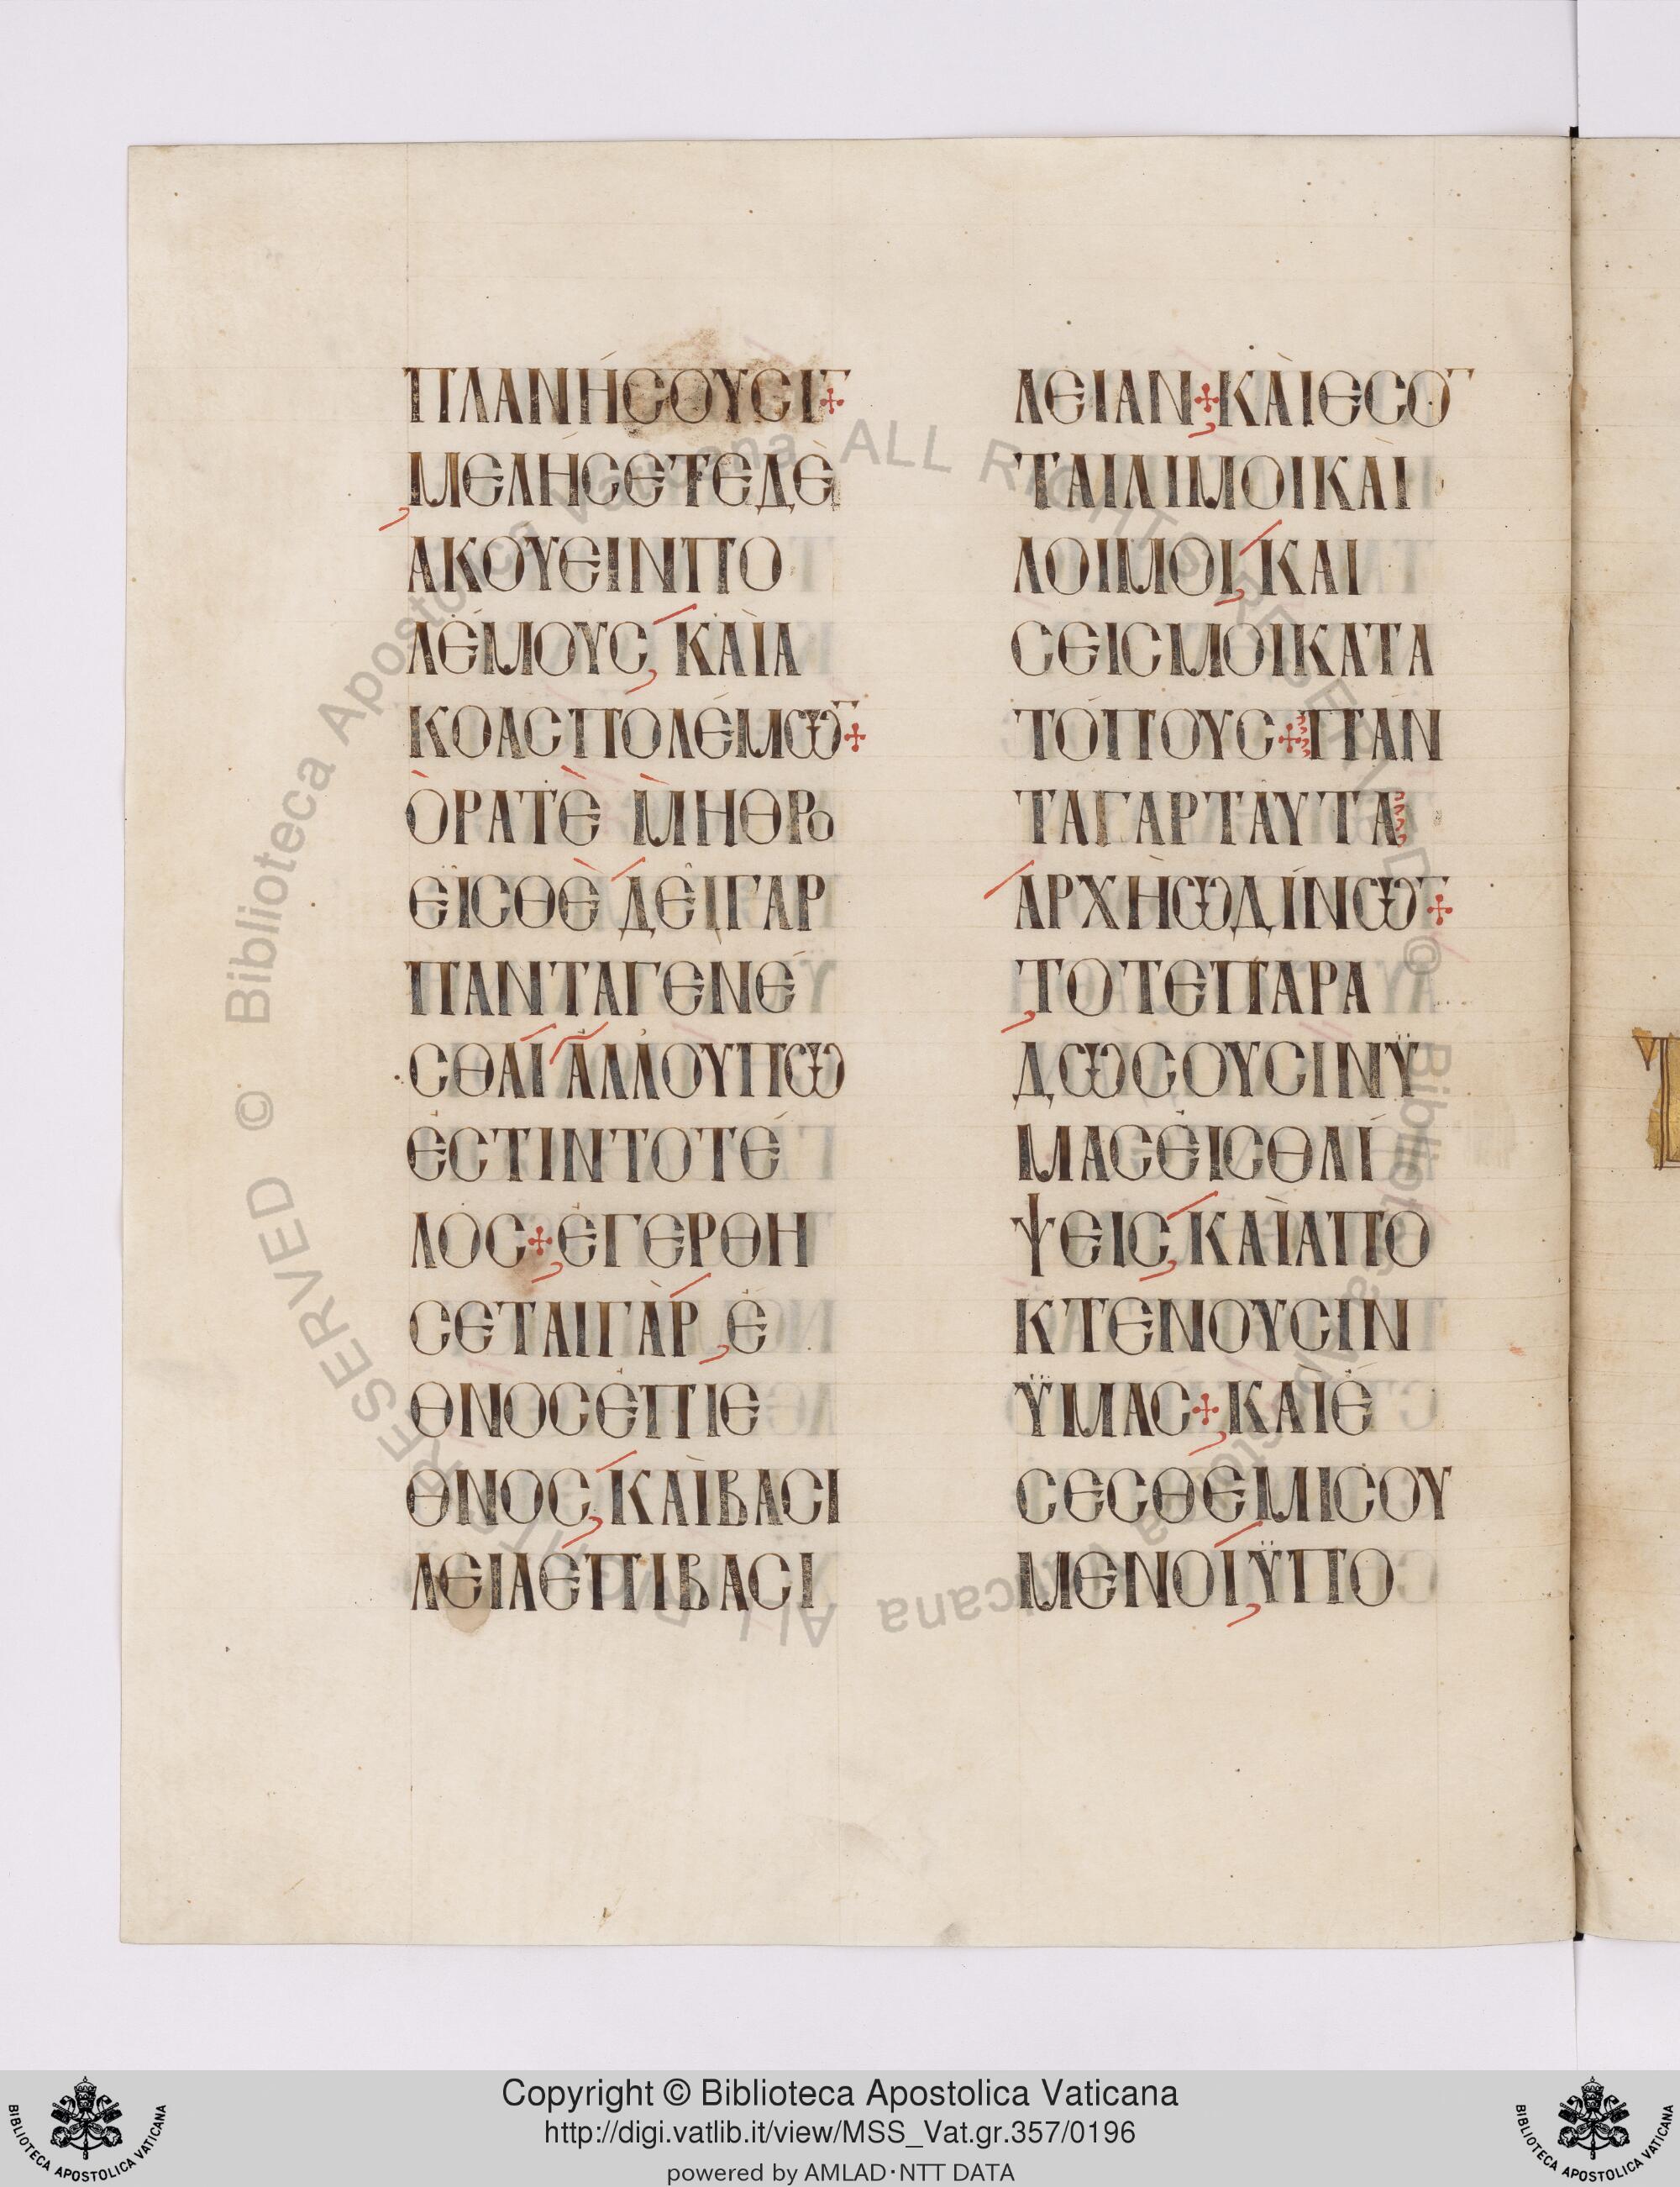 ΠΛΑΝΉϹΟΥϹΙ̅
ΜΕΛΉϹΕΤΕΔῈ
ΑΚΟΎΕΙΝΠΟ
ΛΈΜΟΥϹ, ΚΑῚΑ
ΚΟΑϹΠΟΛΈΜΩ̅
ὉΡΑΤῈ ΜῊΘΡΟ
ΕΪϹΘῈ ΔΕῖΓΑΡ
ΠΑΝΤΑΓΕΝΈ
ϹΘΑΙ ἈΛΛΟΥΠΩ
ἘϹΤΙΝΤΟΤΈ
ΛΟϹ ἘΓΕΡΘΗ
ϹΕΤΑΙΓᾺΡ, Ἐ
ΘΝΟϹἘΠΙΕ
ΘΝΟϹ, ΚΑῚΒΑϹΙ
ΛΕΙΑἘΠΙΒΑϹΙ
ΛΕΙΑΝ ΚΑῚΕϹΟ̅
ΤΑΙΛΙΜΟΙΚΑῚ
ΛΟΙΜΟΙ, ΚΑΙ
ϹΕΙϹΜΟΙΚΑΤΑ
ΤΟΠΟΥϹ ΠΑΝ
ΤΑΓΑΡΤΑΥΤΑ
ΑΡΧῊΩΔΙΝΩ̅
ΤΟΤΕΠΑΡΑ
ΔΩϹΟΥϹΙΝΫ
ΜΑϹἘΙϹΘΛΙ
ΨΕΙϹ, ΚΑῚΑΠΟ
ΚΤΕΝΟΥϹΙΝ
ΫΜΑϹ ΚΑΙἘ
ϹΕϹΘΕΜΙϹΟΥ
ΜΕΝΟΙ, ΫΠΟ
Biblioteca Apostolica Vaticana ALL RIGHTS RESERVED © Biblioteca Apostolica Vaticana ALL RIGHTS RESERVED ©
Copyright © Biblioteca Apostolica Vaticana
http://digi.vatlib.it/view/MSS_Vat.gr.357/0196
powered by AMLAD·NTT DATA
BIBLIOTECA APOSTOLICA VATICANA
BIBLIOTECA APOSTOLICA VATICANA